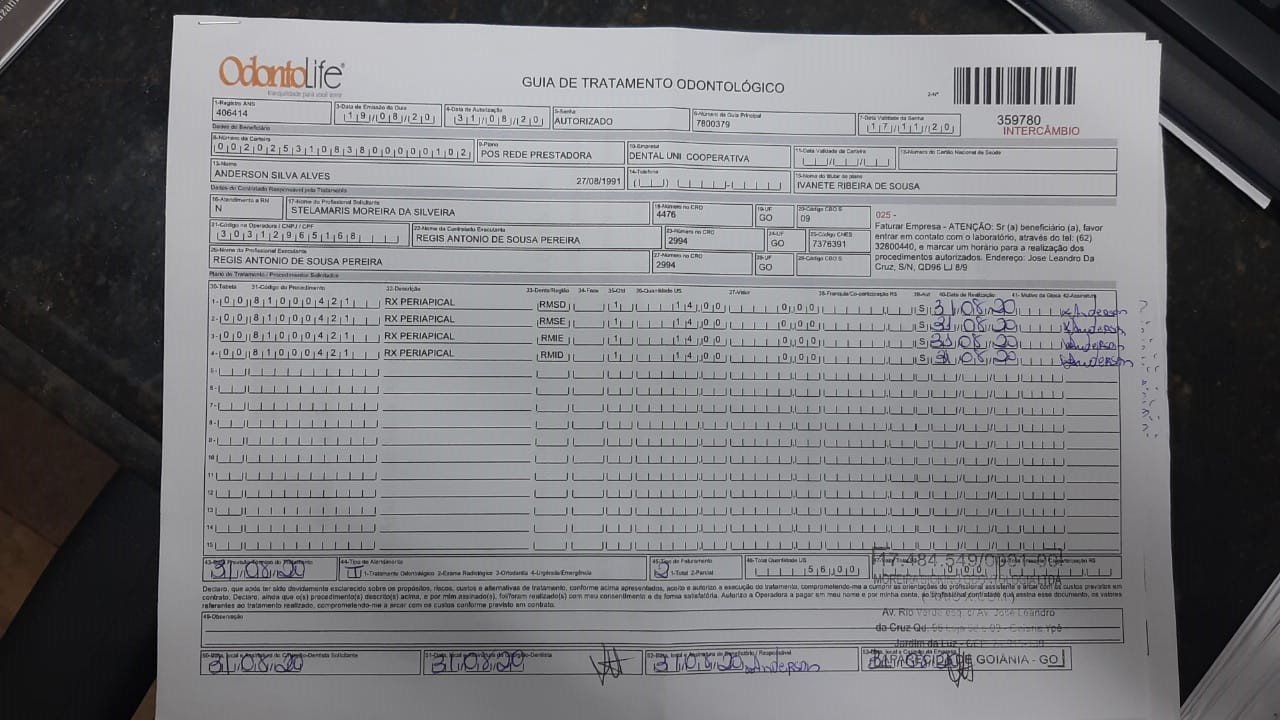 OdontoLife
tranquilidade para você sorrir
GUIA DE TRATAMENTO ODONTOLÓGICO
2-Nº
359780
INTERCÂMBIO
1-Registro ANS
406414
3-Data de Emissão da Guia
19/08/20
4-Data de Autorização
31/08/20
5-Senha
AUTORIZADO
6-Número da Guia Principal
7800379
7-Data Validade da Senha
17/11/20
Dados do Beneficiário
8-Número da Carteira
00202531083800000102
9-Plano
POS REDE PRESTADORA
10-Empresa
DENTAL UNI COOPERATIVA
11-Data Validade da Carteira
12-Número do Cartão Nacional de Saúde
13-Nome
ANDERSON SILVA ALVES 27/08/1991
14-Telefone
15-Nome do titular do plano
IVANETE RIBEIRA DE SOUSA
Dados do Contratado Responsável pelo Tratamento
16-Atendimento a RN
N
17-Nome do Profissional Solicitante
STELAMARIS MOREIRA DA SILVEIRA
18-Número no CRO
4476
19-UF
GO
20-Código CBO S
09
025 -
Faturar Empresa - ATENÇÃO: Sr (a) beneficiário (a), favor
entrar em contato com o laboratório, através do tel: (62)
32800440, e marcar um horário para a realização dos
procedimentos autorizados. Endereço: Jose Leandro Da
Cruz, S/N, QD96 LJ 8/9
21-Código na Operadora / CNPJ / CPF
30312965168
22-Nome do Contratado Executante
REGIS ANTONIO DE SOUSA PEREIRA
23-Número no CRO
2994
24-UF
GO
25-Código CNES
7376391
26-Nome do Profissional Executante
REGIS ANTONIO DE SOUSA PEREIRA
27-Número no CRO
2994
28-UF
GO
29-Código CBO S
Plano de Tratamento / Procedimentos Solicitados
30-Tabela 31-Código do Procedimento 32-Descrição 33-Dente/Região 34-Face 35-Qtd 36-Quantidade US 37-Valor 38-Franquia/Co-participação R$ 39-Aut 40-Data de Realização 41- Motivo da Glosa 42-Assinatura
1- 00 81000421 RX PERIAPICAL RMSD 1 14 00 0 00 S 31/08/20 Anderson
2- 00 81000421 RX PERIAPICAL RMSE 1 14 00 0 00 S 31/08/20 Anderson
3- 00 81000421 RX PERIAPICAL RMIE 1 14 00 0 00 S 31/08/20 Anderson
4- 00 81000421 RX PERIAPICAL RMID 1 14 00 0 00 S 31/08/20 Anderson
5-
6-
7-
8-
9-
10
11
12
13
14
15
31/08/20
44-Tipo de Atendimento
1-Tratamento Odontológico 2-Exame Radiológico 3-Ortodontia 4-Urgência/Emergência
45-Tipo de Faturamento
2 1-Total 2-Parcial
46-Total Quantidade US
56 00
Declaro, que após ter sido devidamente esclarecido sobre os propósitos, riscos, custos e alternativas de tratamento, conforme acima apresentados, aceito e autorizo a execução do tratamento, comprometendo-me a cumprir as orientações do profissional assistente e arcar com os custos previstos em
contrato. Declaro, ainda que o(s) procedimento(s) descrito(s) acima, e por mim assinado(s), foi/foram realizado(s) com meu consentimento e de forma satisfatória. Autorizo a Operadora a pagar em meu nome e por minha conta, ao profissional contratado que assina esse documento, os valores
referentes ao tratamento realizado, comprometendo-me a arcar com os custos conforme previsto em contrato.
49-Observação
Av. Rio Verde esq. c/ Av. José Leandro
da Cruz Qd. 96
Jardim da Luz
50-Data, local e Assinatura do Cirurgião-Dentista Solicitante
31/08/20
51-Data, local e Assinatura do Cirurgião-Dentista
31/08/20
52-Data, local e Assinatura do Beneficiário / Responsável
31/08/20 Anderson
APARECIDA DE GOIÂNIA - GO